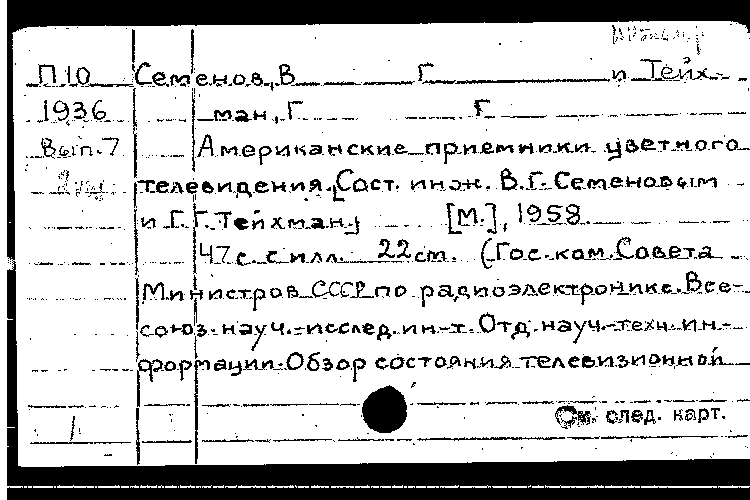 П10 Семенов, В Г и Тейх-
1936 ман, Г Г
Вып.7 Американские приемники цветного
2 телевидения. [Сост. инж. В.Г. Семеновым
и Г.Г. Тейхман] [М.], 1958.
47 с. с илл. 22 см. (Гос. ком. Совета
Министров СССР по радиоэлектронике. Все-
союз. науч.-исслед. ин-т. Отд. науч.-техн. ин-
формации. Обзор состояния телевизионной
1 См. след. карт.